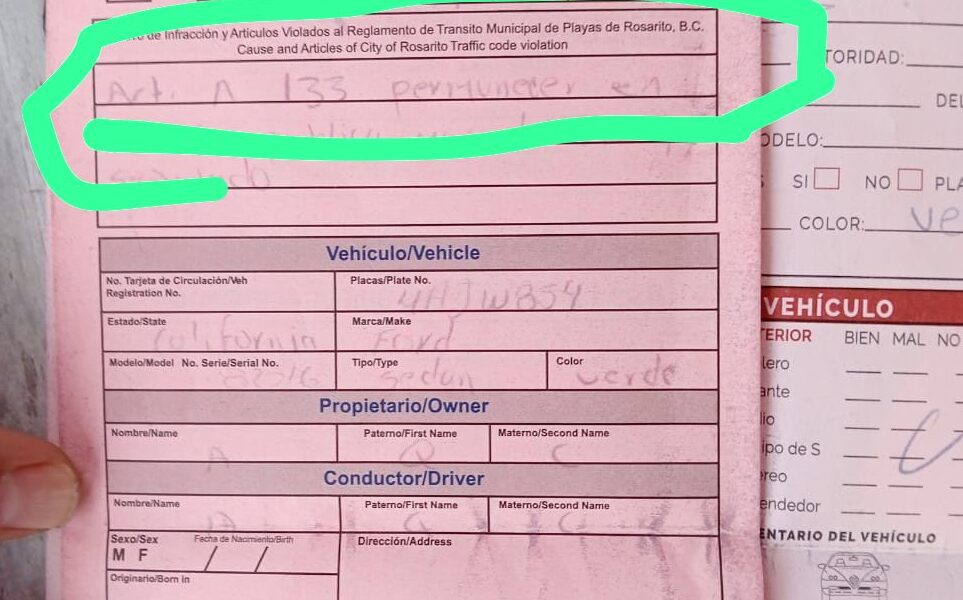 de Infracción y Articulos Violados al Reglamento de Transito Municipal de Playas de Rosarito, B.C.
Cause and Articles of City of Rosarito Traffic code violation
Art. A 133 permanecer en
Vehículo/Vehicle
No. Tarjeta de Circulación/Veh
Registration No.
Placas/Plate No.
Estado/State
California
Marca/Make
Ford
Modelo/Model No. Serie/Serial No.
Tipo/Type
sedan
Color
verde
Propietario/Owner
Nombre/Name
A
Paterno/First Name
Q
Materno/Second Name
C
Conductor/Driver
Nombre/Name
Paterno/First Name
Q
Materno/Second Name
C
Sexo/Sex
M F
Fecha de Nacimiento/Birth
/ /
Dirección/Address
Originario/Born in
TORIDAD:
DEL
ODELO:
SI NO PLA
COLOR: ve
VEHÍCULO
TERIOR BIEN MAL NO
lero
ante
lio
ipo de S
ereo
endedor
ENTARIO DEL VEHÍCULO